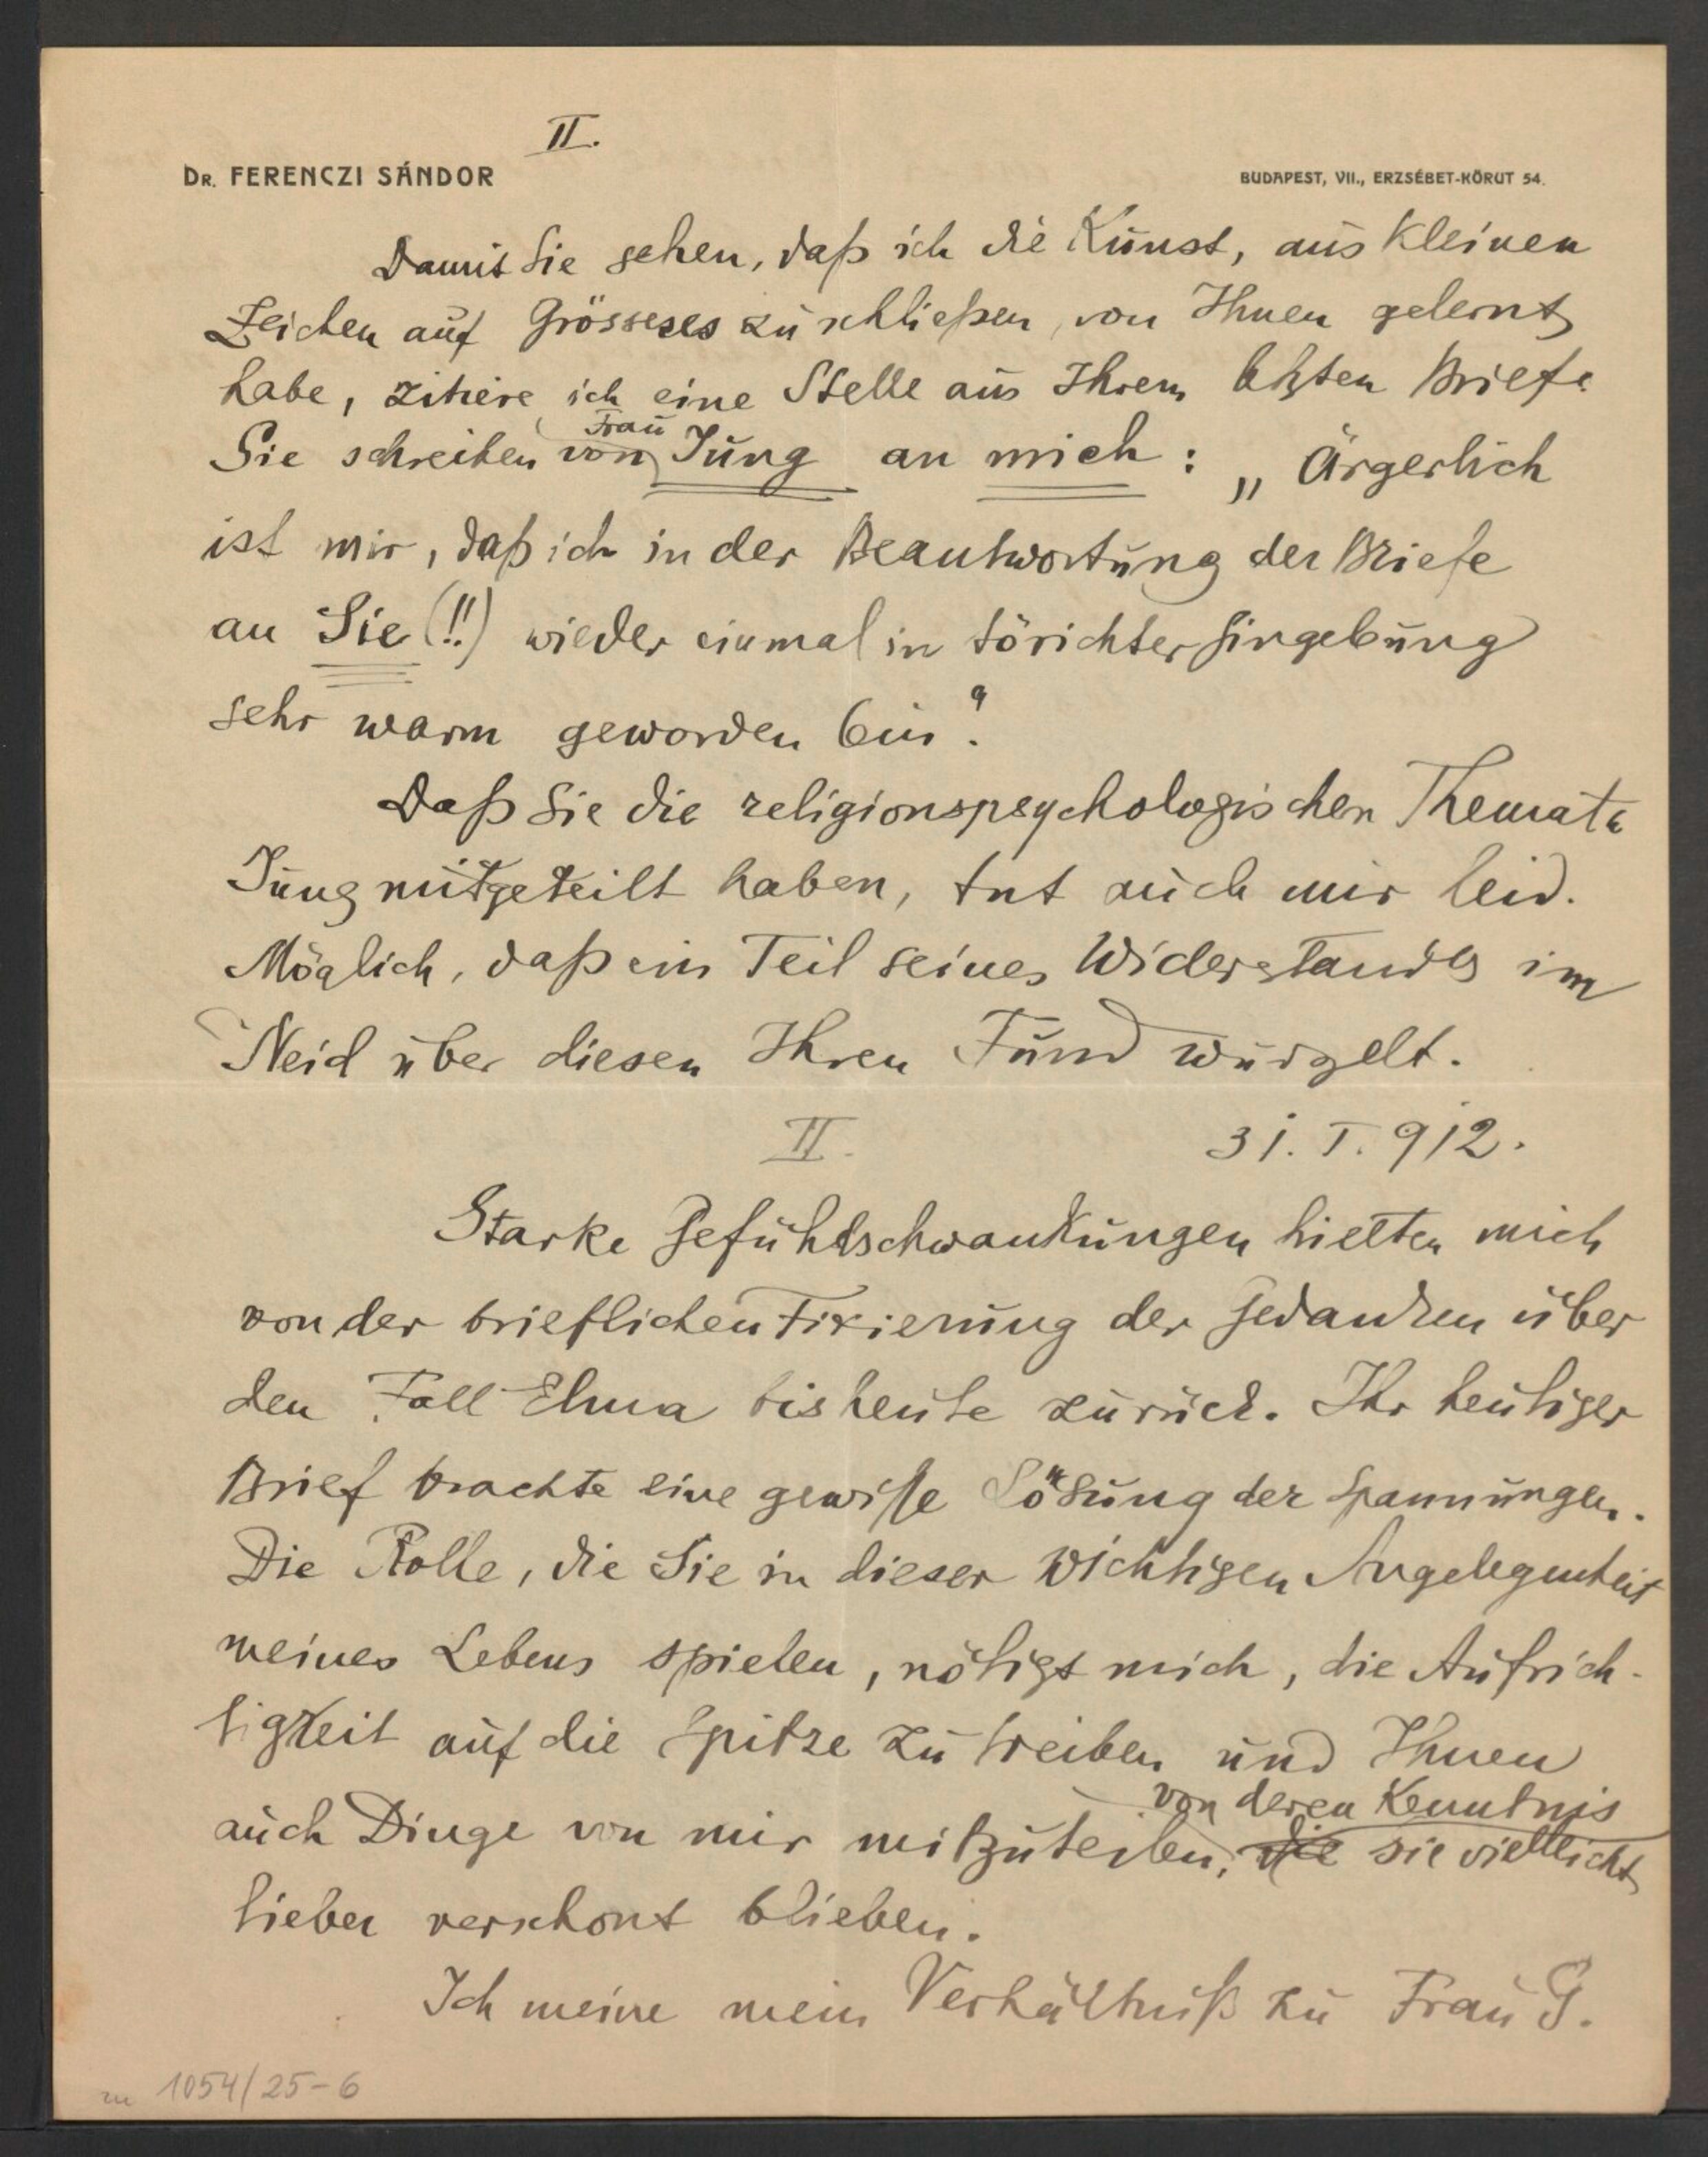 II.
DR. FERENCZI SÁNDOR
BUDAPEST, VII., ERZSÉBET-KÖRUT 54.
Damit Sie sehen, daß ich die Kunst, aus kleinen
Zeichen auf Grösseres zu schließen, von Ihnen gelernt
habe, zitiere ich eine Stelle aus Ihrem letzten Briefe.
Sie schreiben von Frau Jung an mich: „Ärgerlich
ist mir, daß ich in der Beantwortung der Briefe
an Sie (!!) wieder einmal in törichter Hingebung
sehr warm geworden bin“.
Daß Sie die religionspsychologischen Themata
Jung mitgeteilt haben, tut auch mir leid.
Möglich, daß ein Teil seines Widerstandes im
Neid über diesen Ihren Fund wurzelt.
II.
31. I. 912.
Starke Gefühlsschwankungen hielten mich
von der brieflichen Fixierung der Gedanken über
den Fall Elma bis heute zurück. Ihr heutiger
Brief brachte eine gewisse Lösung der Spannungen.
Die Rolle, die Sie in dieser wichtigen Angelegenheit
meines Lebens spielen, nötigt mich, die Aufrich-
tigkeit auf die Spitze zu treiben und Ihnen
auch Dinge von mir mitzuteilen, die von deren Kenntnis sie vielleicht
lieber verschont blieben.
Ich meine mein Verhältniß zu Frau G.
1054/25-6